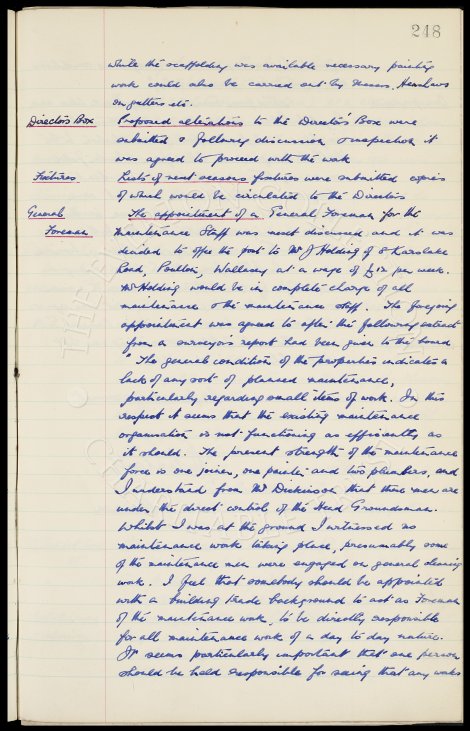 248
while the scaffolding was available necessary painting
work could also be carried out by Messrs. Henshaws
on gutters etc.
Directors Box Proposed alterations to the Directors' Box were
submitted & following discussion & inspection it
was agreed to proceed with the work
Fixtures Lists of next seasons fixtures were submitted copies
of which would be circulated to the Directors
General The appointment of a General Foreman for the
Foreman maintenance Staff was next discussed and it was
decided to offer the post to Mr J Holding of 8 Karslake
Road, Poulton, Wallasey at a wage of £12 per week.
Mr Holding would be in complete charge of all
maintenance & the maintenance staff. The foregoing
appointment was agreed to after the following extract
from a surveyor's report had been given to the board
"The general condition of the properties indicates a
lack of any sort of planned maintenance,
particularly regarding small items of work. In this
respect it seems that the existing maintenance
organisation is not functioning as efficiently as
it should. The present strength of the maintenance
force is one joiner, one painter and two plumbers, and
I understand from Mr Dickinson that these men are
under the direct control of the Head Groundsman.
Whilst I was at the ground I witnessed no
maintenance work taking place, presumably some
of the maintenance men were engaged on general cleaning
work. I feel that somebody should be appointed
with a building trade background to act as Foreman
of the maintenance work, to be directly responsible
for all maintenance work of a day to day nature.
It seems particularly important that one person
should be held responsible for seeing that any works